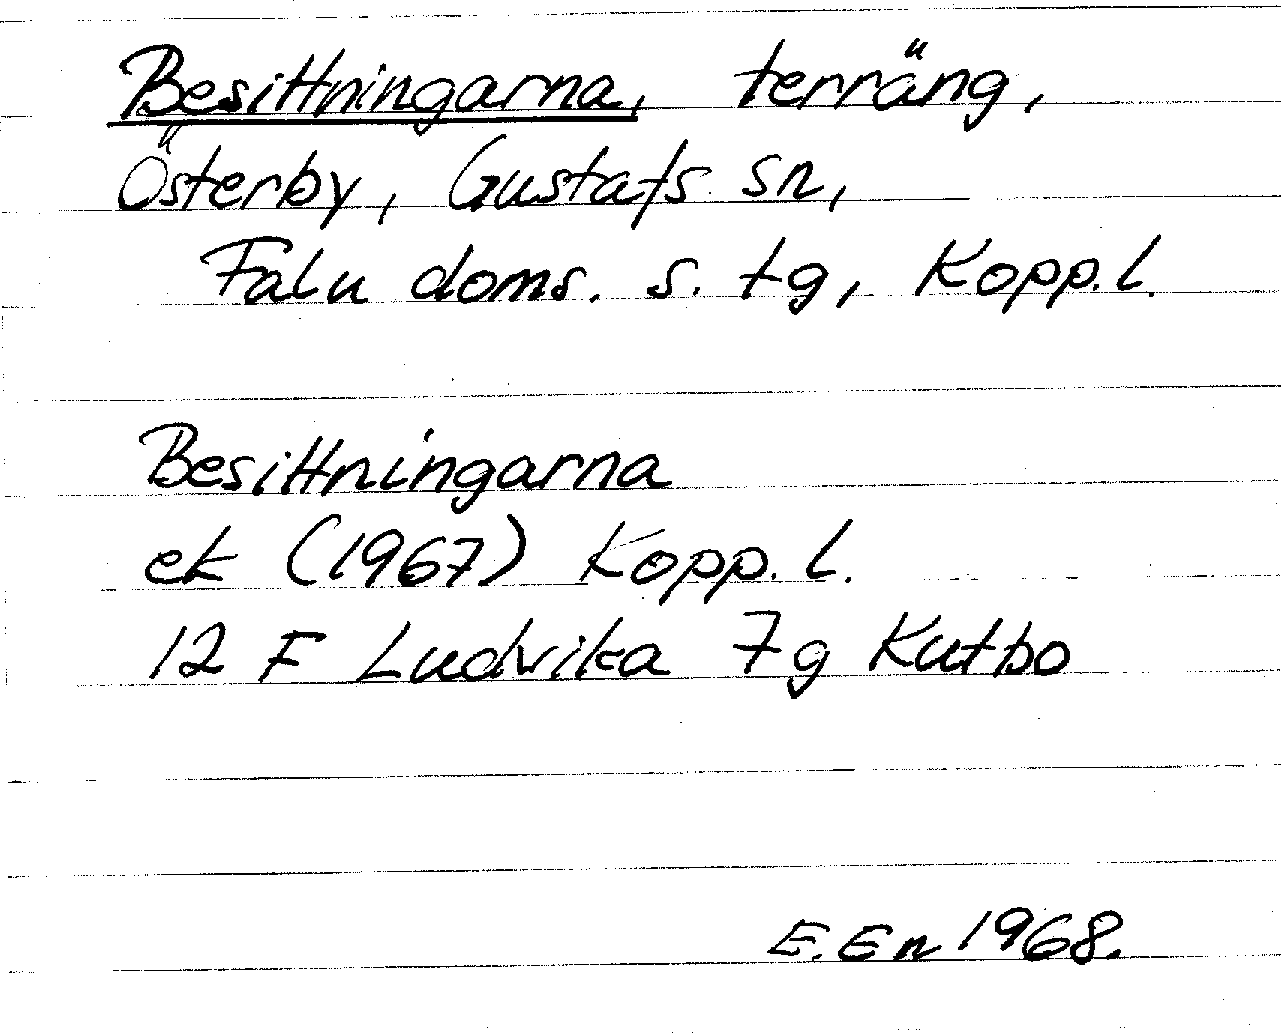 Besittningarna, terräng,
Österby, Gustafs sn,
Falu doms. s. tg, Kopp. l.
Besittningarna
ek (1967) Kopp. l.
12 F Ludvika 7g Kutbo
E. En 1968.